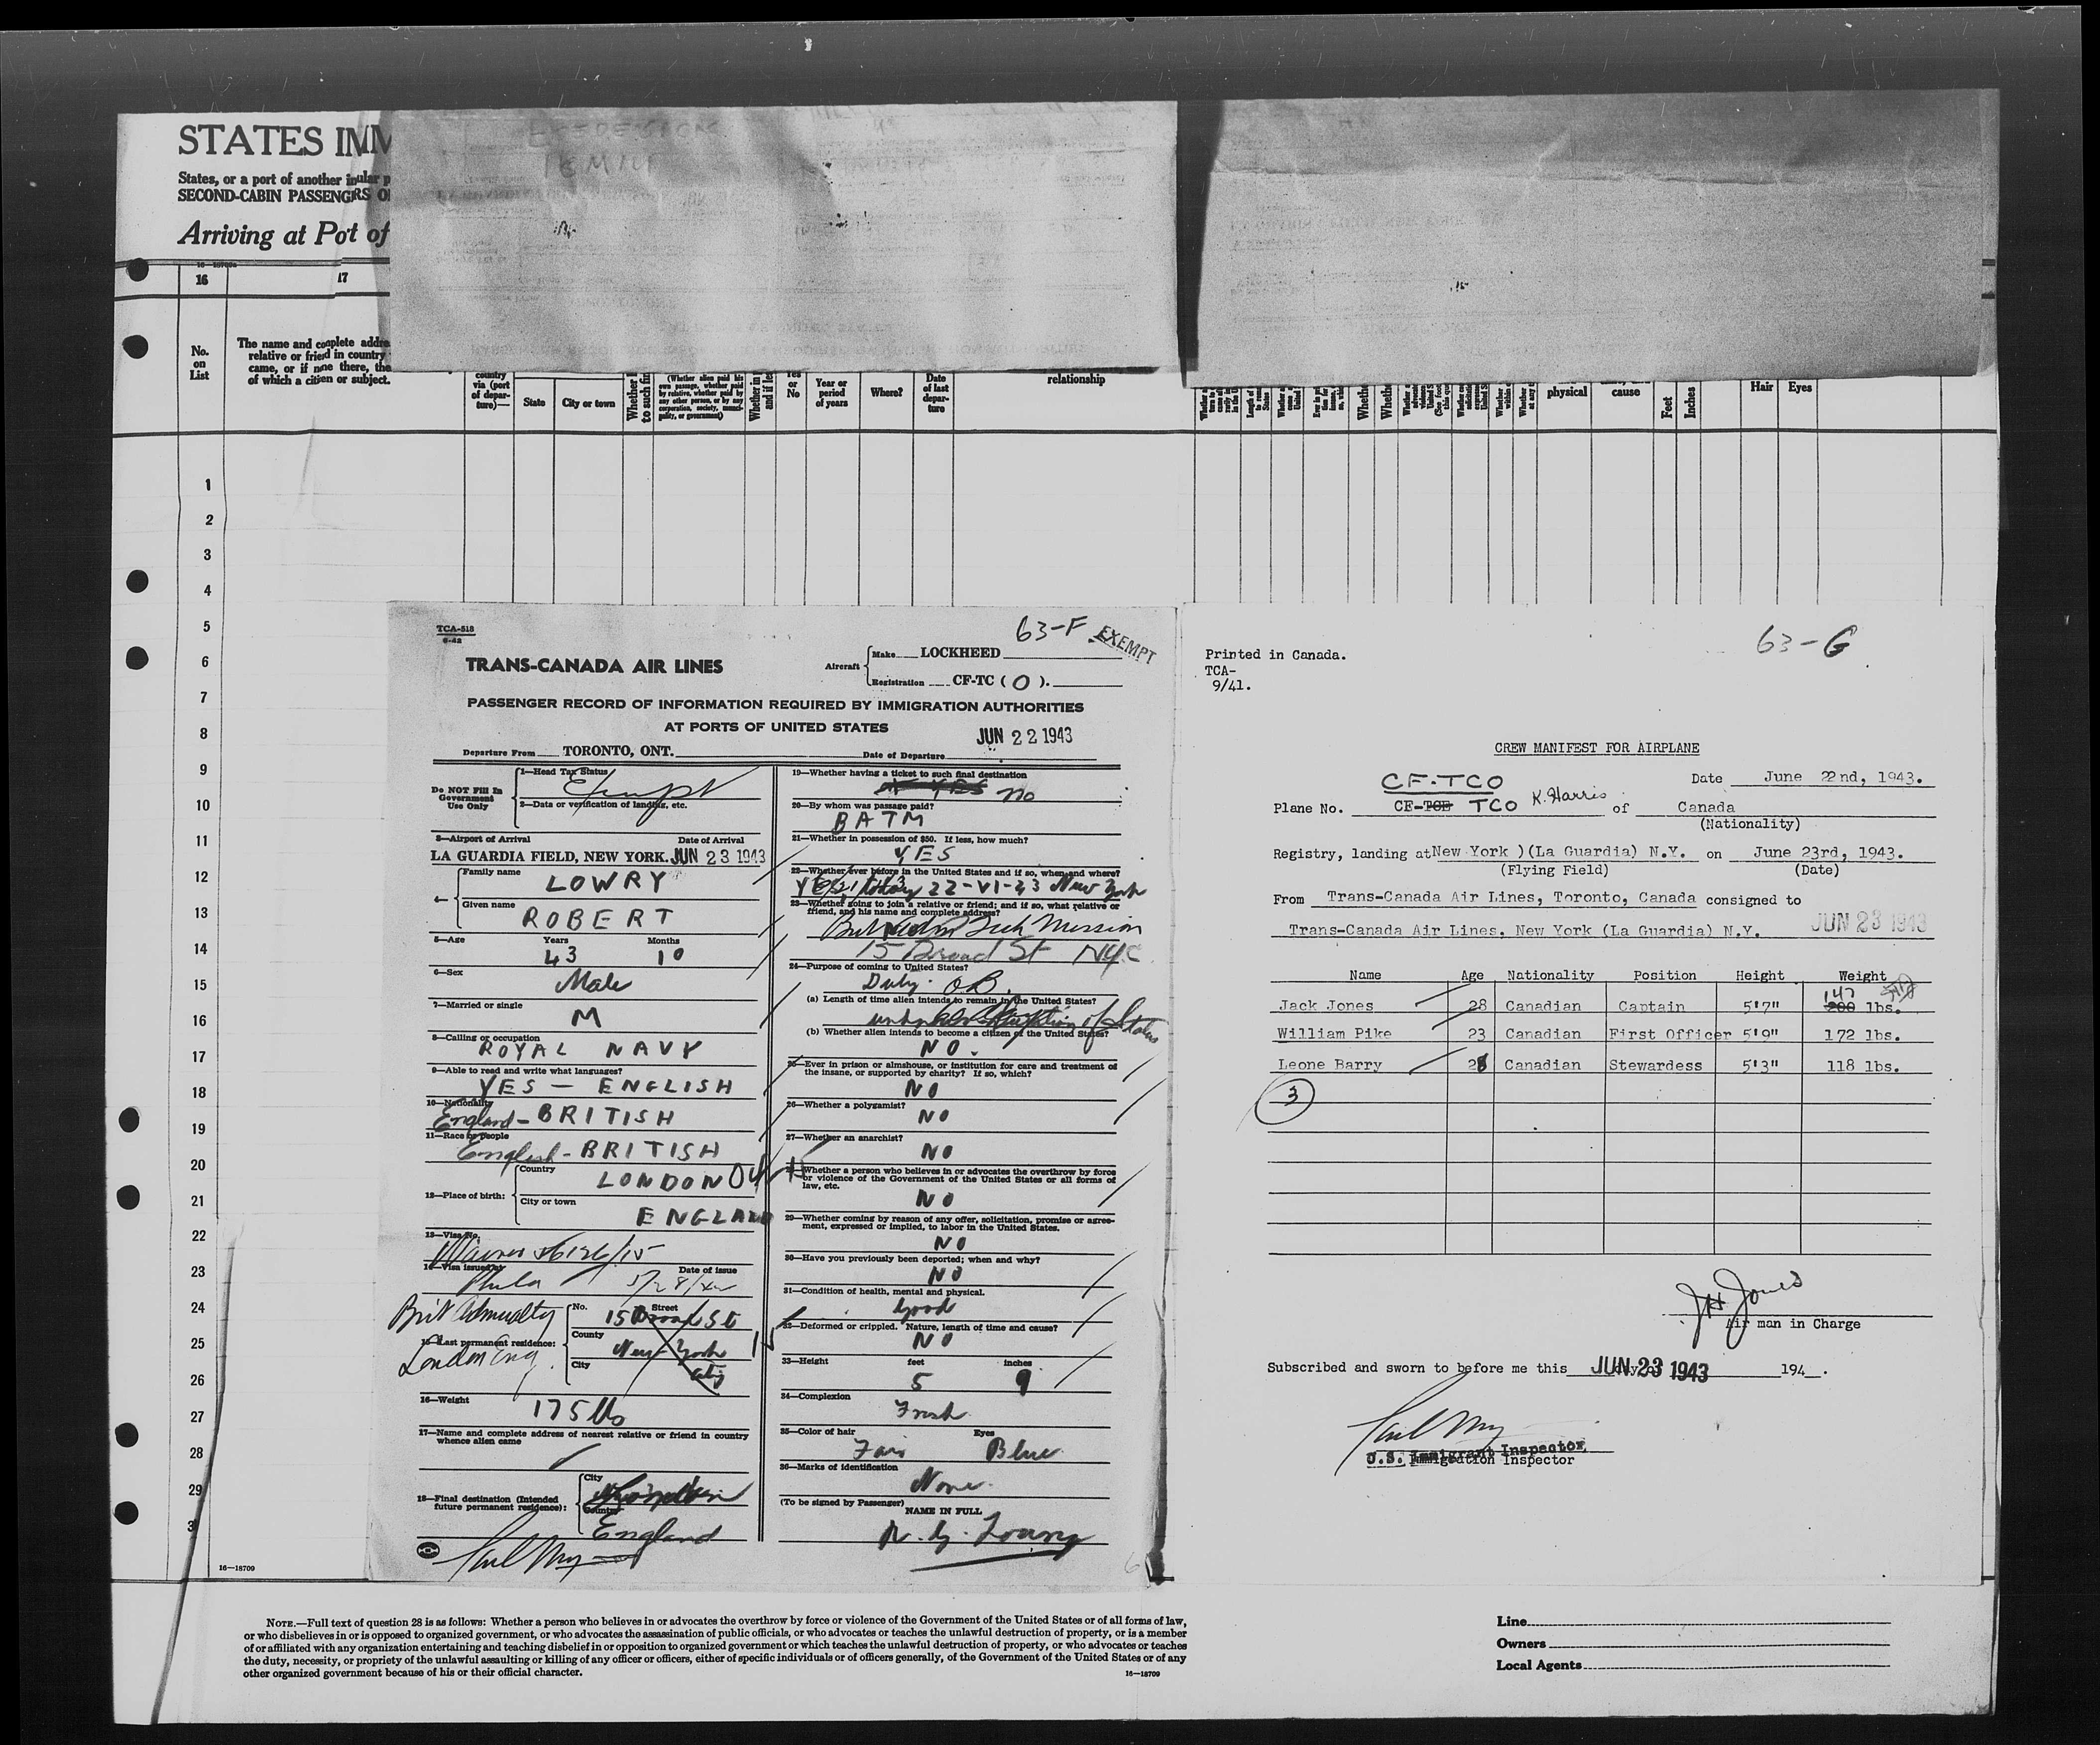 STATES IMM
States, or a port of another insular p
SECOND-CABIN PASSENGERS O
Arriving at Port of
16
17
No. on List
The name and complete addre
relative or friend in country
came, or if none there, the
of which a citizen or subject.
country
via (port
of depar-
ture)—
State
City or town
(Whether alien paid his
own passage, whether paid
by relative, whether paid by
any other person, or by any
corporation, society, munici-
pality, or government)
Yes
or
No
Year or
period
of years
Where?
Date
of last
depar-
ture
relationship
physical
cause
Feet
Inches
Hair
Eyes
1
2
3
4
5
6
7
8
9
10
11
12
13
14
15
16
17
18
19
20
21
22
23
24
25
26
27
28
29
3
16—18709
TCA-518
6-42
63-F EXEMPT
TRANS-CANADA AIR LINES
Aircraft
Make LOCKHEED
Registration CF-TC ( O ).
PASSENGER RECORD OF INFORMATION REQUIRED BY IMMIGRATION AUTHORITIES
AT PORTS OF UNITED STATES
JUN 22 1943
Departure From TORONTO, ONT. Date of Departure
Do NOT Fill In
Government
Use Only
1—Head Tax Status
Exempt
2—Data or verification of landing, etc.
3—Airport of Arrival Date of Arrival
LA GUARDIA FIELD, NEW YORK. JUN 23 1943
4— Family name
LOWRY
Given name
ROBERT
5—Age Years Months
43 10
6—Sex
Male
7—Married or single
M
8—Calling or occupation
ROYAL NAVY
9—Able to read and write what languages?
YES — ENGLISH
10—Nationality
England - BRITISH
11—Race or people
English - BRITISH
12—Place of birth:
Country
LONDON
City or town
ENGLAND
13—Visa No.
14—Visa issued at Date of issue
Phila
Brit Admiralty
15—Last permanent residence:
London Eng.
No. Street
15 Broad St
County
New York
City
City
16—Weight
175 lbs
17—Name and complete address of nearest relative or friend in country
whence alien came
18—Final destination (Intended
future permanent residence):
City
Country
England
19—Whether having a ticket to such final destination
YES no
20—By whom was passage paid?
BATM
21—Whether in possession of $50. If less, how much?
YES
22—Whether ever before in the United States and if so, when and where?
22-VI-43 New York
23—Whether going to join a relative or friend; and if so, what relative or
friend, and his name and complete address?
Brit Adm Tech Mission
15 Broad St NYC
24—Purpose of coming to United States?
Duty. O.B.
(a) Length of time alien intends to remain in the United States?
(b) Whether alien intends to become a citizen of the United States?
NO.
25—Ever in prison or almshouse, or institution for care and treatment of
the insane, or supported by charity? If so, which?
NO
26—Whether a polygamist?
NO
27—Whether an anarchist?
NO
Whether a person who believes in or advocates the overthrow by force
or violence of the Government of the United States or all forms of
law, etc.
NO
29—Whether coming by reason of any offer, solicitation, promise or agree-
ment, expressed or implied, to labor in the United States.
NO
30—Have you previously been deported; when and why?
NO
31—Condition of health, mental and physical.
Good
32—Deformed or crippled. Nature, length of time and cause?
NO
33—Height feet inches
5 9
34—Complexion
Fresh
35—Color of hair Eyes
Fair Blue
36—Marks of identification
None.
(To be signed by Passenger)
NAME IN FULL
Printed in Canada.
TCA-
9/41.
63-G
CREW MANIFEST FOR AIRPLANE
CF-TCO
Date June 22nd, 1943.
Plane No. CF-TCE TCO K. Harris of Canada
(Nationality)
Registry, landing at New York )(La Guardia) N.Y. on June 23rd, 1943.
(Flying Field) (Date)
From Trans-Canada Air Lines, Toronto, Canada consigned to
Trans-Canada Air Lines, New York (La Guardia) N.Y. JUN 23 1943
Name Age Nationality Position Height Weight
147
Jack Jones 28 Canadian Captain 5'7" 200 lbs.
William Pike 23 Canadian First Officer 5'9" 172 lbs.
Leone Barry 28 Canadian Stewardess 5'3" 118 lbs.
3
JH Jones
Air man in Charge
Subscribed and sworn to before me this JUN 23 1943 194 .
U.S. Immigrant Inspector
Immigration Inspector
NOTE.—Full text of question 28 is as follows: Whether a person who believes in or advocates the overthrow by force or violence of the Government of the United States or of all forms of law,
or who disbelieves in or is opposed to organized government, or who advocates the assassination of public officials, or who advocates or teaches the unlawful destruction of property, or is a member
of or affiliated with any organization entertaining and teaching disbelief in or opposition to organized government or which teaches the unlawful destruction of property, or who advocates or teaches
the duty, necessity, or propriety of the unlawful assaulting or killing of any officer or officers, either of specific individuals or of officers generally, of the Government of the United States or of any
other organized government because of his or their official character.
16—18709
Line
Owners
Local Agents